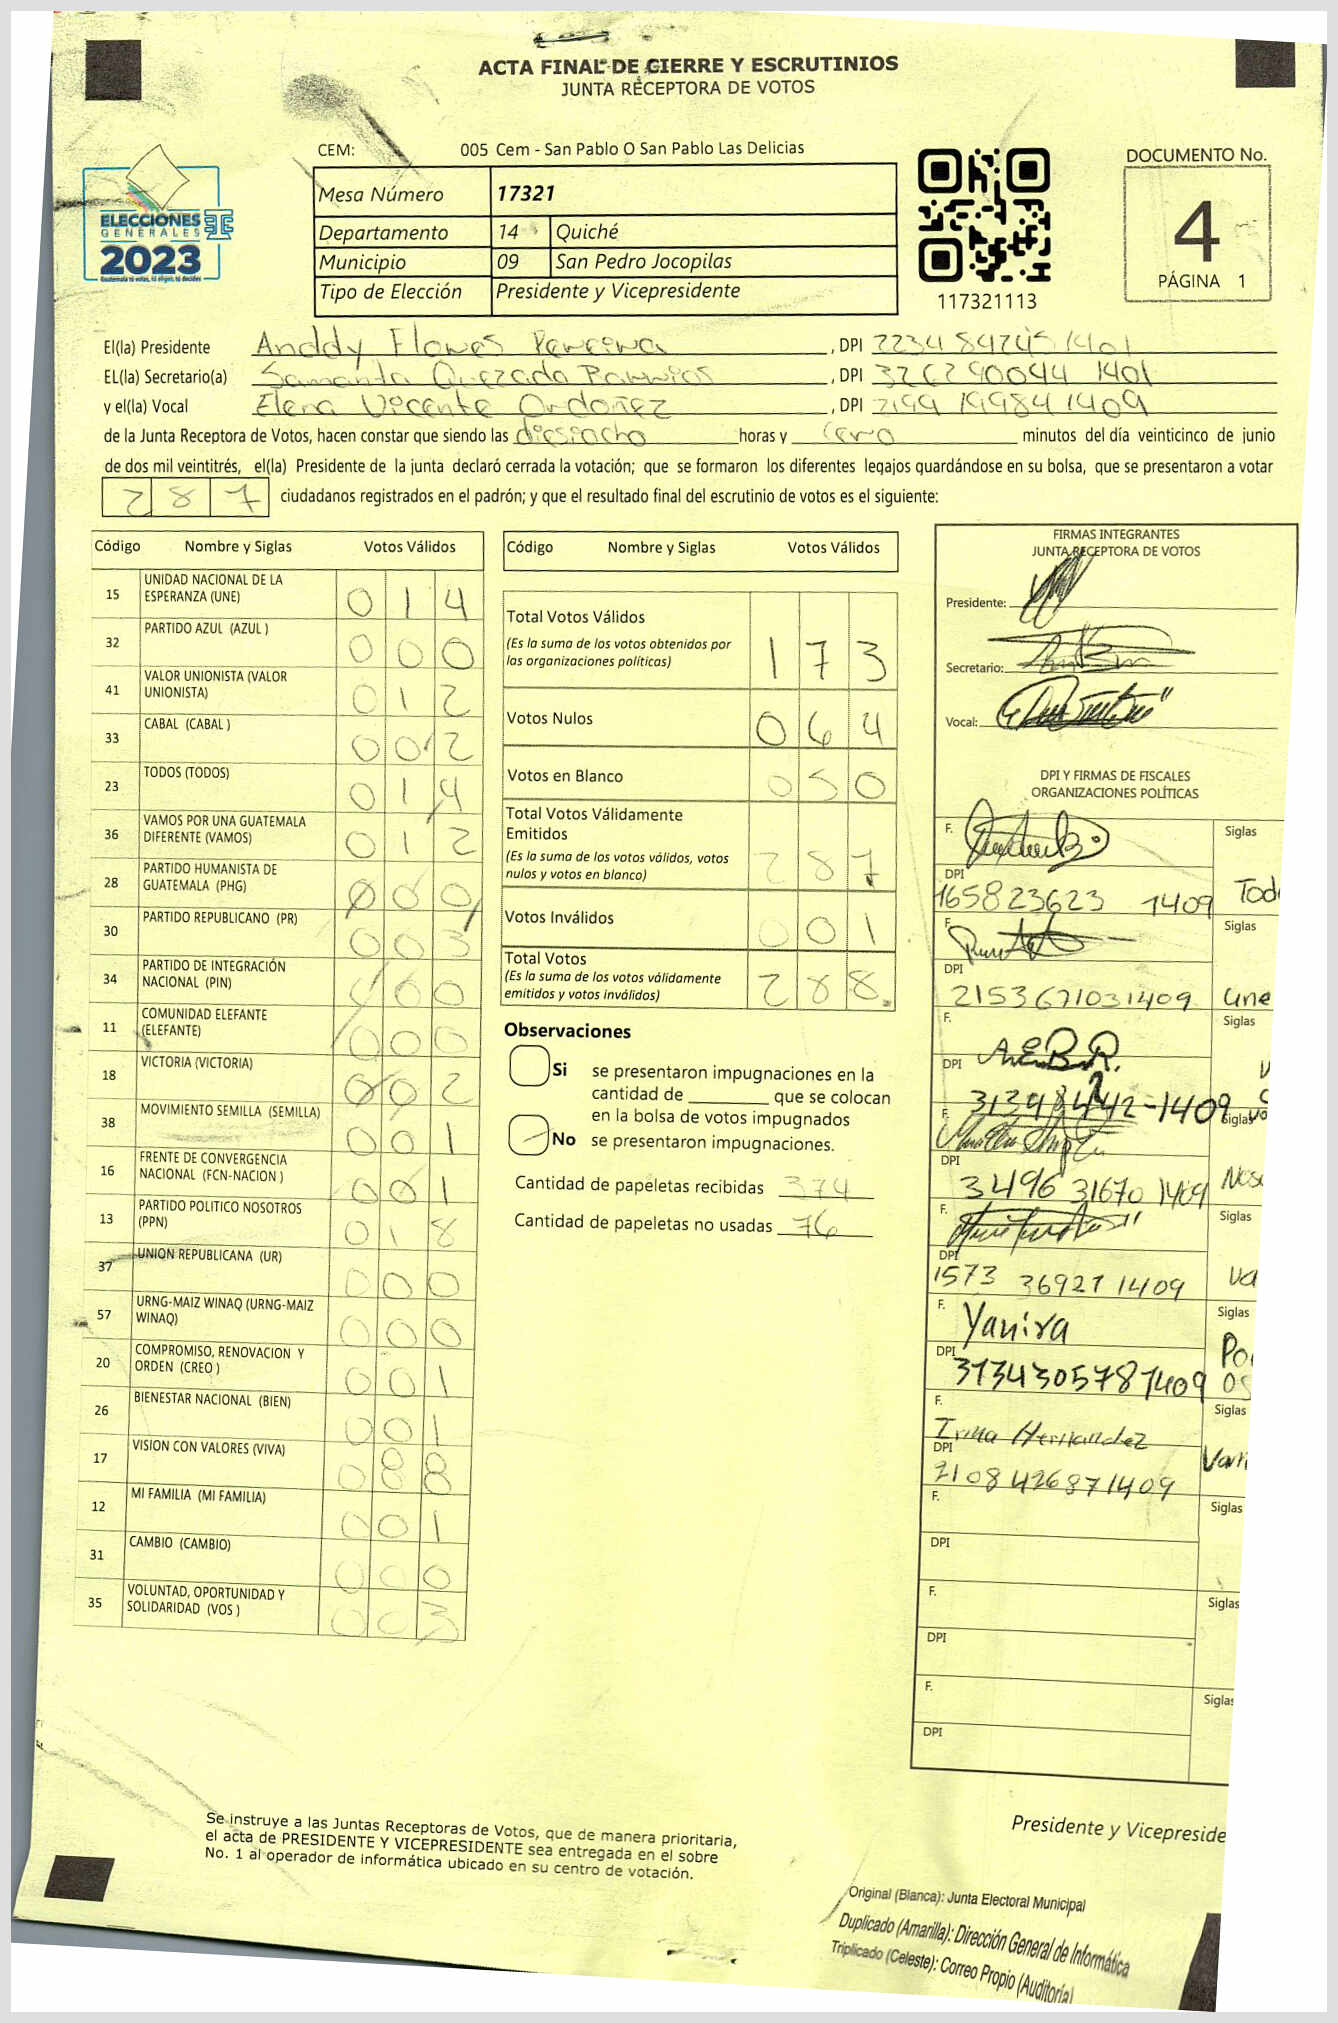 ACTA FINAL DE CIERRE Y ESCRUTINIOS
JUNTA RECEPTORA DE VOTOS
CEM: 005 Cem - San Pablo O San Pablo Las Delicias
ELECCIONES
GENERALES
2023
Guatemala tú votas, tú eliges, tú decides
Mesa Número 17321
Departamento 14 Quiché
Municipio 09 San Pedro Jocopilas
Tipo de Elección Presidente y Vicepresidente
117321113
DOCUMENTO No.
4
PÁGINA 1
El(la) Presidente Anddy Flores Pereira , DPI
EL(la) Secretario(a) Samanta Quezada Barrios , DPI 326290044 1401
y el(la) Vocal Elena Vicente Ordoñez , DPI 2199 19984 1409
de la Junta Receptora de Votos, hacen constar que siendo las diesiocho horas y cero minutos del día veinticinco de junio
de dos mil veintitrés, el(la) Presidente de la junta declaró cerrada la votación; que se formaron los diferentes legajos guardándose en su bolsa, que se presentaron a votar
287 ciudadanos registrados en el padrón; y que el resultado final del escrutinio de votos es el siguiente:
Código Nombre y Siglas Votos Válidos
15 UNIDAD NACIONAL DE LA ESPERANZA (UNE) 0 1 4
32 PARTIDO AZUL (AZUL ) 0 0 0
41 VALOR UNIONISTA (VALOR UNIONISTA) 0 1 2
33 CABAL (CABAL ) 0 0 2
23 TODOS (TODOS) 0 1 4
36 VAMOS POR UNA GUATEMALA DIFERENTE (VAMOS) 0 1 2
28 PARTIDO HUMANISTA DE GUATEMALA (PHG) 0 0 0
30 PARTIDO REPUBLICANO (PR) 0 0 3
34 PARTIDO DE INTEGRACIÓN NACIONAL (PIN) 0 0
11 COMUNIDAD ELEFANTE (ELEFANTE) 0 0 0
18 VICTORIA (VICTORIA) 0 0 2
38 MOVIMIENTO SEMILLA (SEMILLA) 0 0 1
16 FRENTE DE CONVERGENCIA NACIONAL (FCN-NACION ) 0 0 1
13 PARTIDO POLITICO NOSOTROS (PPN) 0 1 8
37 UNION REPUBLICANA (UR) 0 0 0
57 URNG-MAIZ WINAQ (URNG-MAIZ WINAQ) 0 0 0
20 COMPROMISO, RENOVACION Y ORDEN (CREO ) 0 0 1
26 BIENESTAR NACIONAL (BIEN) 0 0 1
17 VISION CON VALORES (VIVA) 0 8 8
12 MI FAMILIA (MI FAMILIA) 0 0 1
31 CAMBIO (CAMBIO) 0 0 0
35 VOLUNTAD, OPORTUNIDAD Y SOLIDARIDAD (VOS ) 0 0 3
Código Nombre y Siglas Votos Válidos
Total Votos Válidos 1 7 3
(Es la suma de los votos obtenidos por las organizaciones políticas)
Votos Nulos 0 6 4
Votos en Blanco 0 5 0
Total Votos Válidamente Emitidos 2 8 7
(Es la suma de los votos válidos, votos nulos y votos en blanco)
Votos Inválidos 0 0 1
Total Votos 2 8 8
(Es la suma de los votos válidamente emitidos y votos inválidos)
Observaciones
Si se presentaron impugnaciones en la
cantidad de ________ que se colocan
en la bolsa de votos impugnados
No se presentaron impugnaciones.
Cantidad de papeletas recibidas 374
Cantidad de papeletas no usadas 76
FIRMAS INTEGRANTES
JUNTA RECEPTORA DE VOTOS
Presidente:
Secretario:
Vocal:
DPI Y FIRMAS DE FISCALES
ORGANIZACIONES POLÍTICAS
F. Siglas
DPI 165823623 1409 Tod
F. Siglas
DPI 2153671031409 Une
F. A.E.B.R. Siglas
DPI
F. Siglas
DPI 3496 31670 1409 Noso
F. Siglas
DPI 1573 36927 1409 Va
F. Yanira Siglas
DPI 3734305781409
F. Irma Hernandez Siglas
DPI 2108426871409
F. Siglas
DPI
F. Siglas
DPI
F. Siglas
DPI
Presidente y Vicepreside
Se instruye a las Juntas Receptoras de Votos, que de manera prioritaria,
el acta de PRESIDENTE Y VICEPRESIDENTE sea entregada en el sobre
No. 1 al operador de informática ubicado en su centro de votación.
Original (Blanca): Junta Electoral Municipal
Duplicado (Amarilla): Dirección General de Informática
Triplicado (Celeste): Correo Propio (Auditoría)